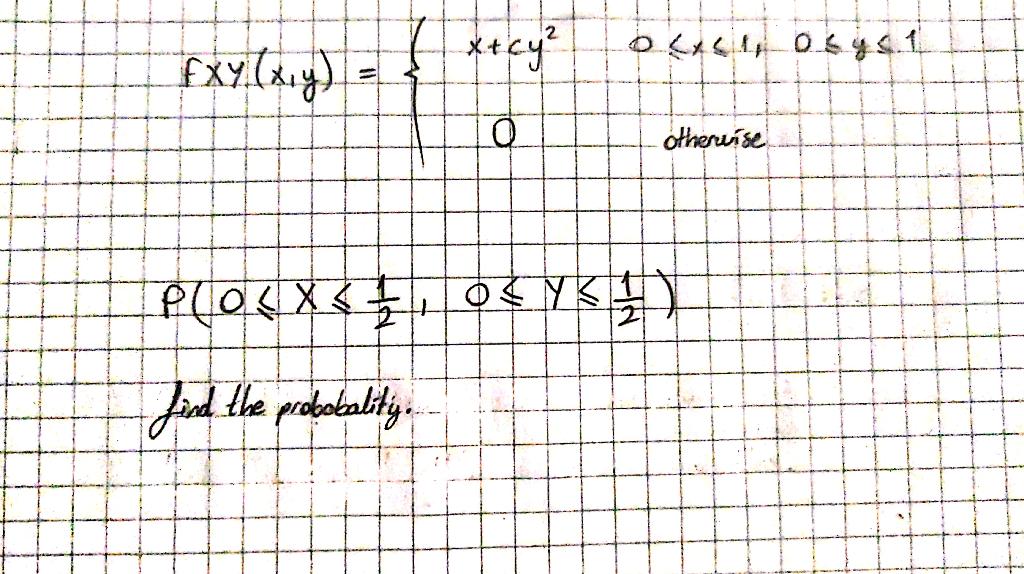 fXY(x,y) = { x+cy² 0≤x≤1, 0≤y≤1
0 otherwise
P(0≤X≤1/2, 0≤Y≤1/2)
find the probobality.